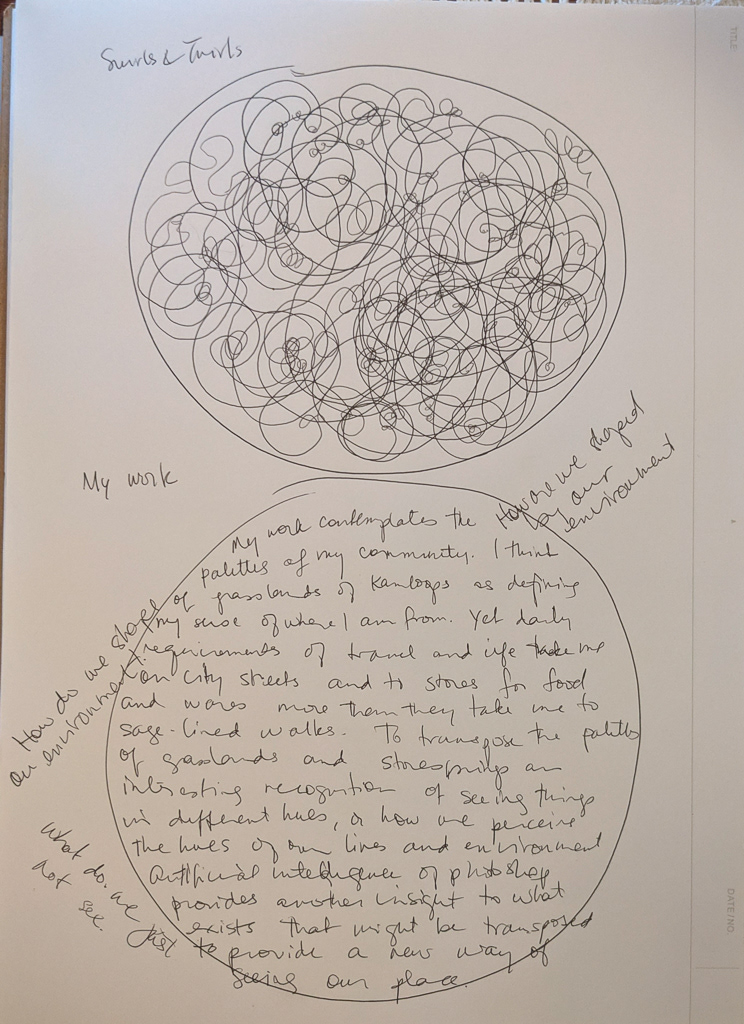 Swirls & Twirls
My work
How are we shaped
by our
environment
My work contemplates the
palettes of my community. I think
of grasslands of Kamloops as defining
my sense of where I am from. Yet daily
requirements of travel and life take me
on city streets and to stores for food
and wares more than they take me to
sage-lined walks. To transpose the palettes
of grasslands and stores brings an
interesting recognition of seeing things
in different hues, or how we perceive
the hues of our lives and environment
Artificial intelligence of photoshop
provides another insight to what
exists that might be transposed
to provide a new way of
seeing our place.
How do we shape
our environment?
What do we just
not see.
TITLE:
DATE/NO.